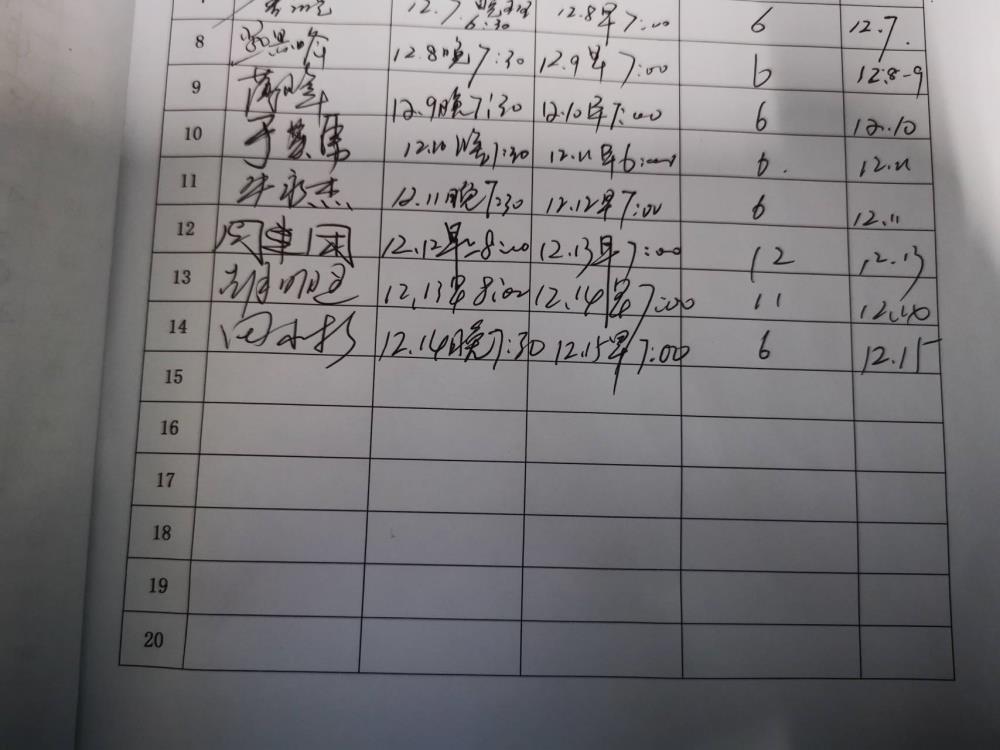 12.7. 晚 6:30 12.8早7:00 6 12.7.
8 12.8晚7:30 12.9早7:00 6 12.8-9
9 12.9晚7:30 12.10早7:00 6 12.10
10 12.10晚7:30 12.11早6:00 6. 12.11
11 牛永杰 12.11晚7:30 12.12早7:00 6 12.11
12 闫建国 12.12早8:00 12.13早7:00 12 12.13
13 12.13早8:00 12.14早7:00 11 12.140
14 12.14晚7:30 12.15早7:00 6 12.15
15
16
17
18
19
20